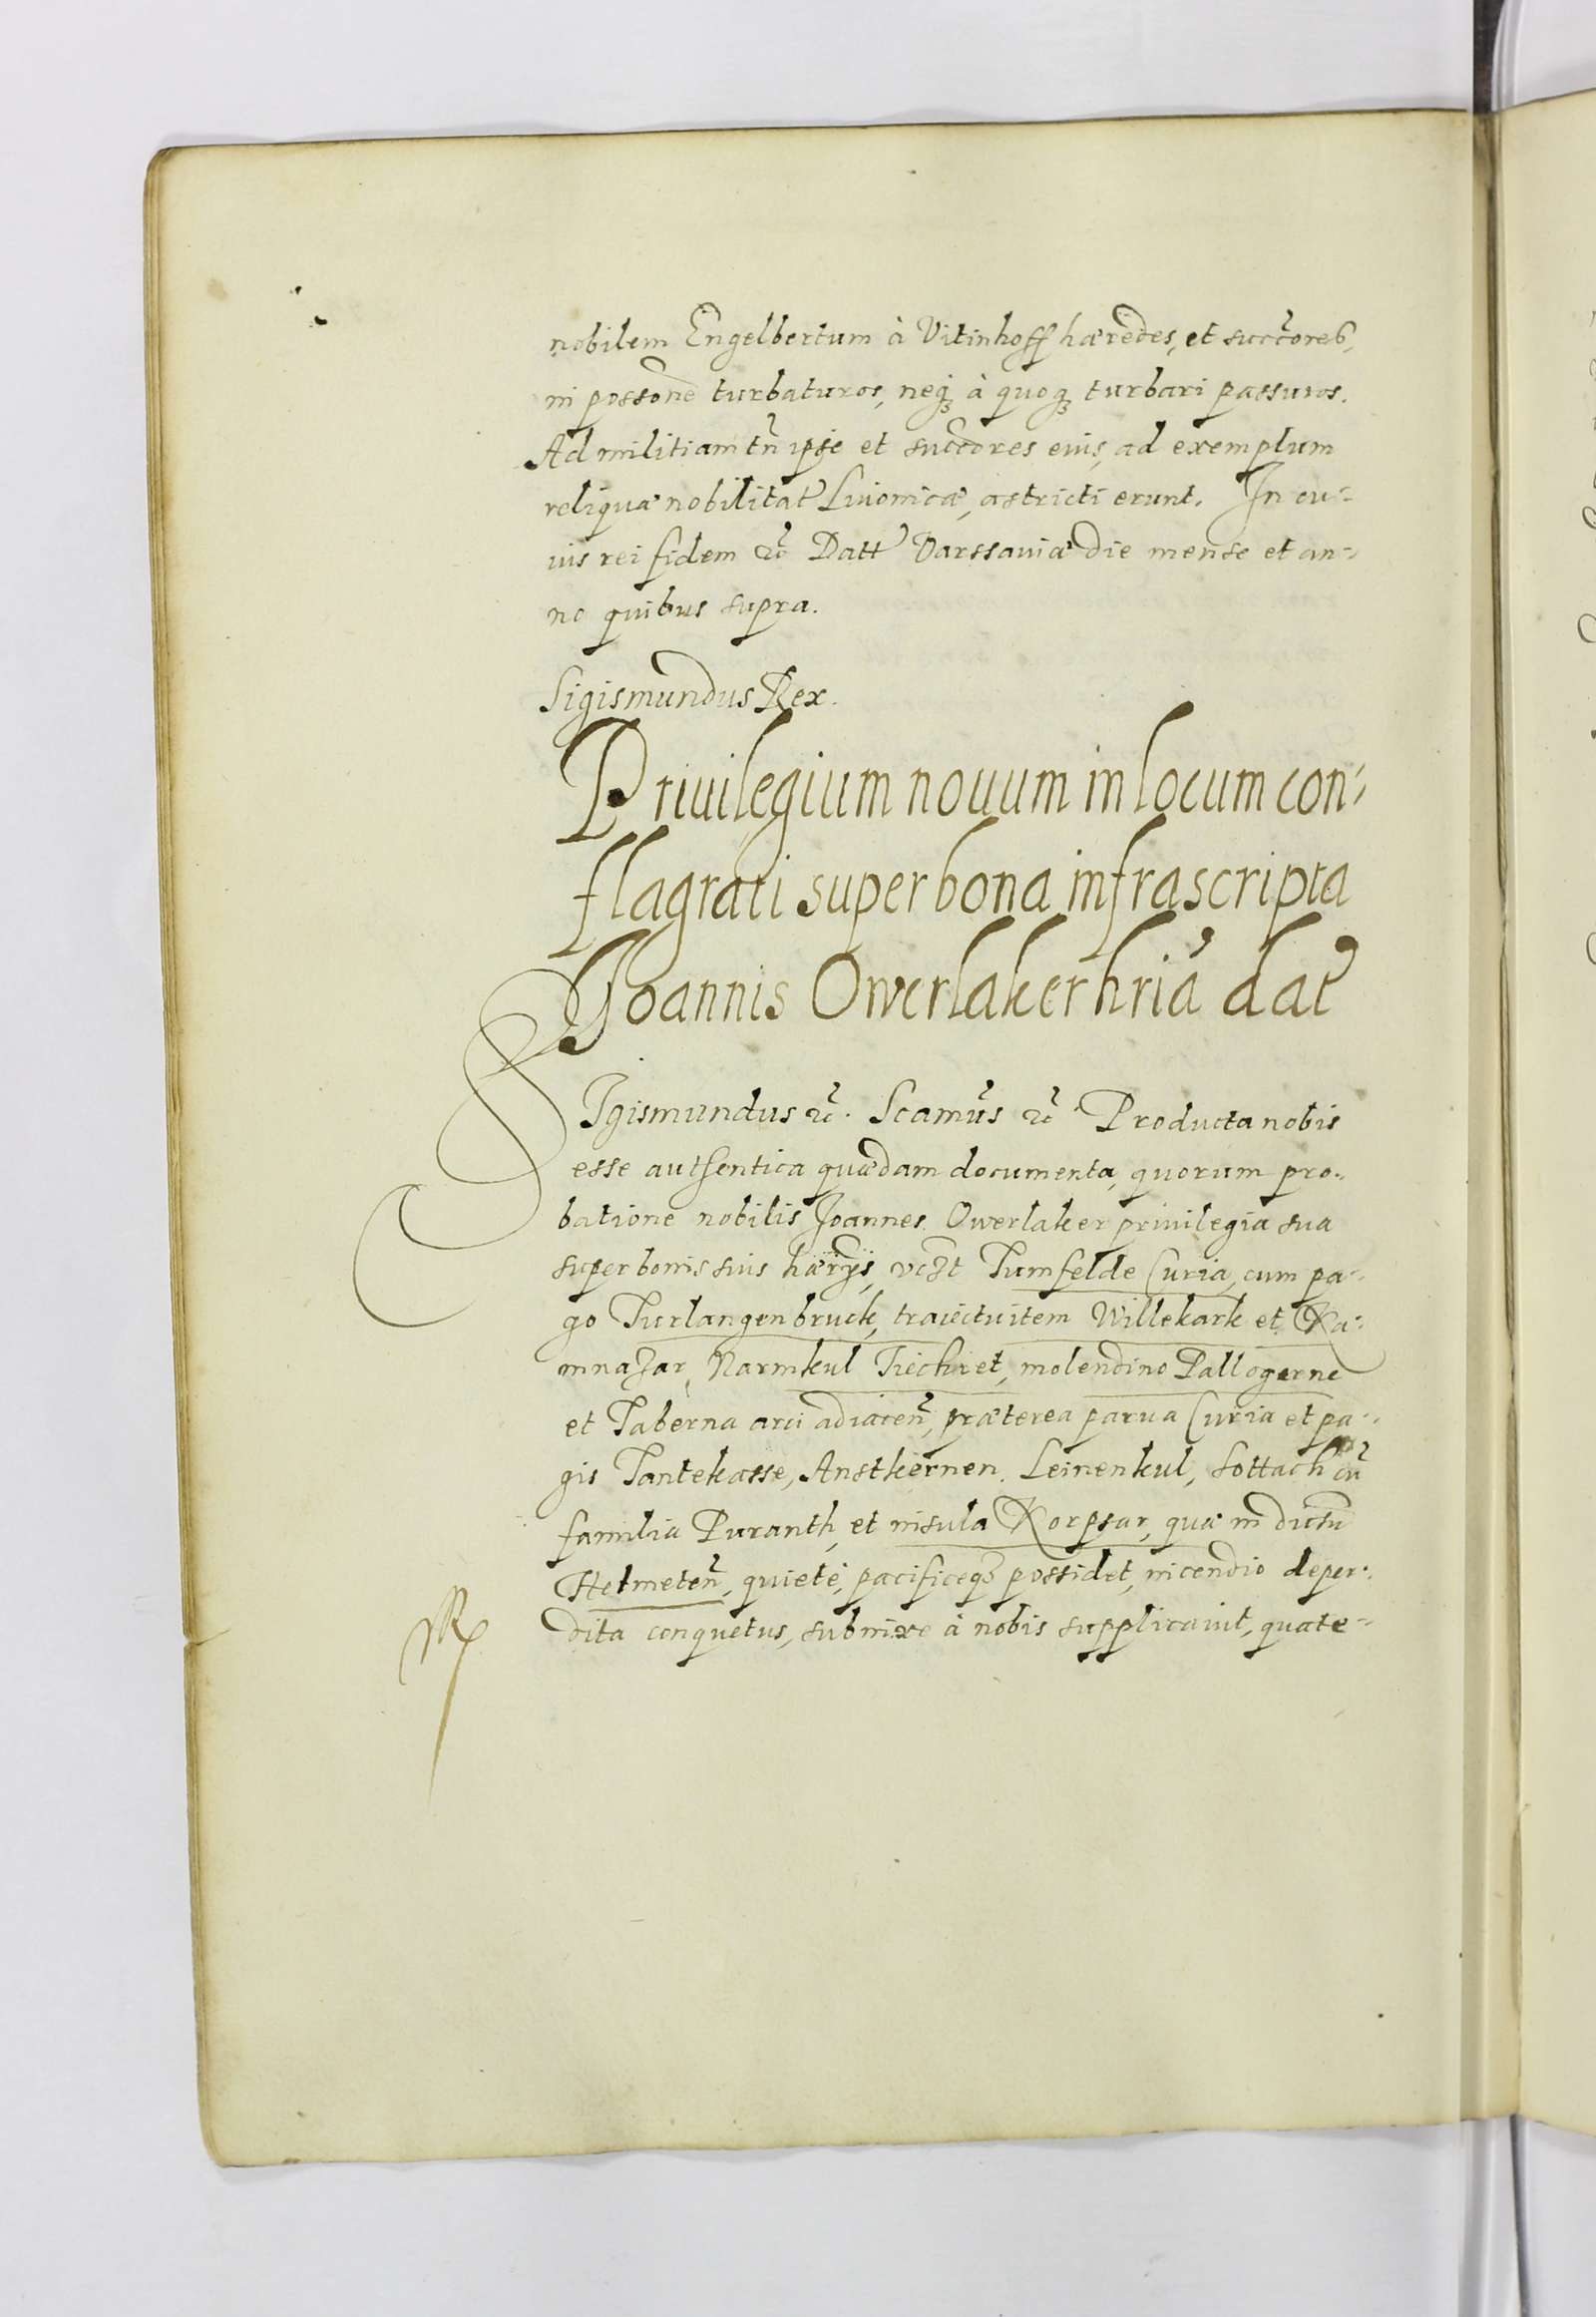 nobilem Engelbertum à Vitinhoff hæredes, et succores,
in possone turbaturos, neq́ à quoq́ turbari passuros.
Ad militiam tñ ipse et succores eius, ad exemplum
reliquæ nobilitat Liuonicæ, astricti erunt. In cu-
ius rei fidem ꝛc Datt Varssauiæ die mense et an-
no quibus supra.
Sigismundus Rex.
Priuilegium nouum in locum con-
flagrati super bona infrascripta
Joannis Owerlaker hria dat
SIgismundus ꝛc. Scamus ꝛc Producta nobis
esse authentica quædam documenta, quorum pro-
batione nobilis Joannes Owerlaker priuilegia sua
super bonis suis hærijs, vczt Tumfelde Curia, cum pa-
go Turlangenbruck, traiectu item Willekark et Ka-
mnazar, Narmkul Tiechiet, molendino Pallogerne
et Taberna arci adiacen, præterea parua Curia et pa-
gis Tantekasse, Anstkernen, Leinenkul, Sottach cũ
familia Puranth, et insula Korpsar, quæ in dictu
Helmeten, quietè, pacificeq possidet, incendio deper-
dita conquetus, submixe à nobis supplicauit, quate-